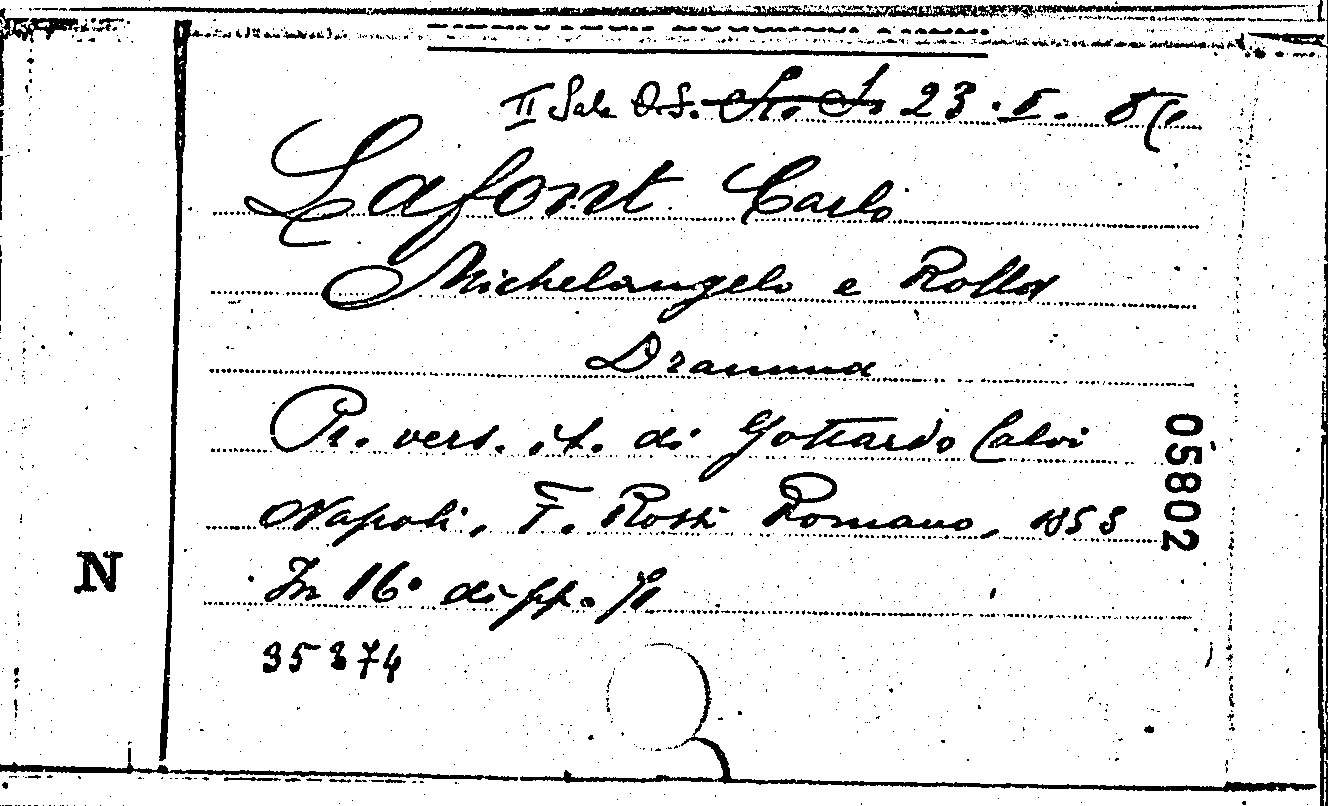 II Sala O.S. 23. I.
Lafont Carlo
Michelangelo e Rolla
Dramma
Pr. vers. it. di Gottardo Calvi
Napoli, F. Rossi Romano, 1853
In 16° di pp.
35374
05802
N